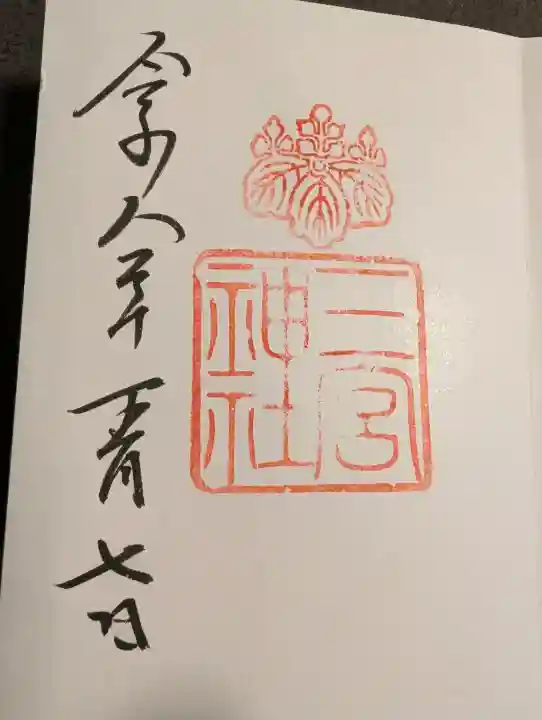 三宮
神社
令和八年 七日